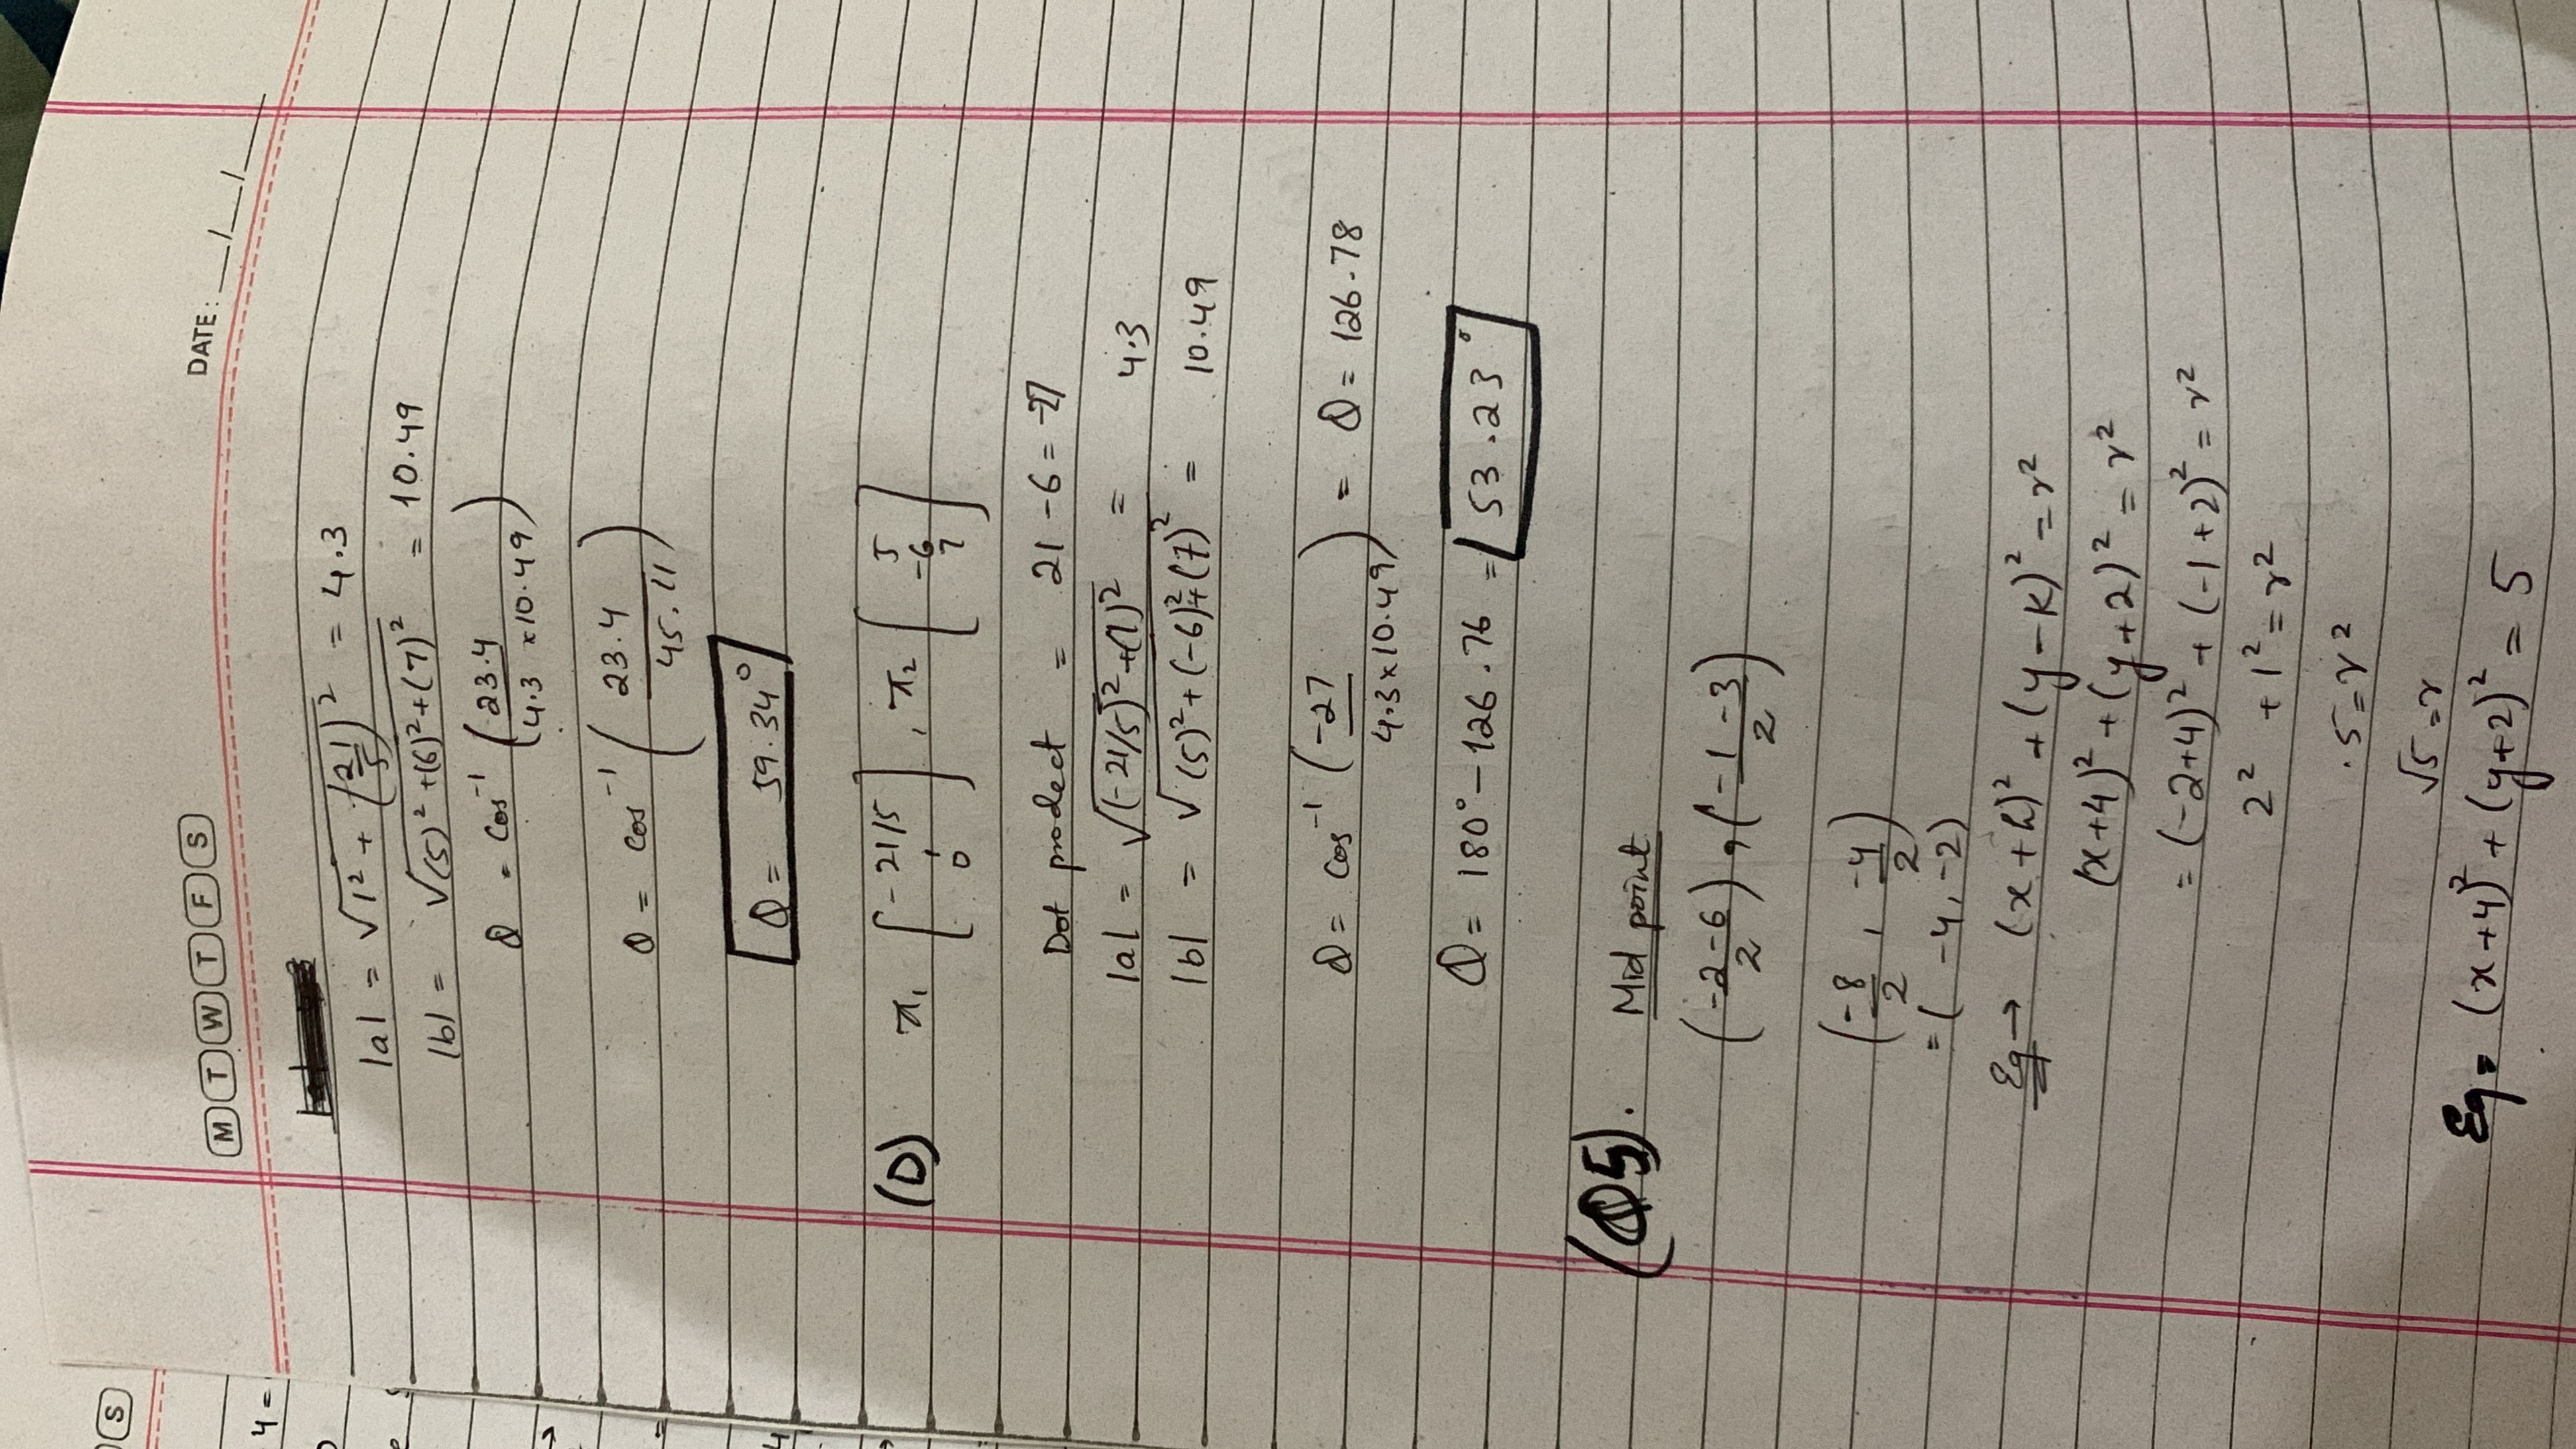 S
M T W T F S
DATE: __/__/__
4 =
|a| = √1² + (21/5)² = 4.3
|b| = √(5)² + (6)² + (7)² = 10.49
θ = cos⁻¹ (23.4 / 4.3 × 10.49)
θ = cos⁻¹ (23.4 / 45.11)
θ = 59.34°
(D) π₁ [-21/5 1 0], π₂ [5 -6 7]
Dot prodect = 21 - 6 = -27
|a| = √(-21/5)² + (1)² = 4.3
|b| = √(5)² + (-6)² + (7)² = 10.49
θ = cos⁻¹ (-27 / 4.3 × 10.49) = θ = 126.78
θ = 180° - 126.76 = 53.23°
(Q5). Mid point
(-2-6 / 2), (-1-3 / 2)
(-8/2, -4/2)
= (-4, -2)
Eq → (x+h)² + (y-k)² = r²
(x+4)² + (y+2)² = r²
= (-2+4)² + (-1+2)² = r²
2² + 1² = r²
.5 = r²
√5 = r
Eq = (x+4)² + (y+2)² = 5